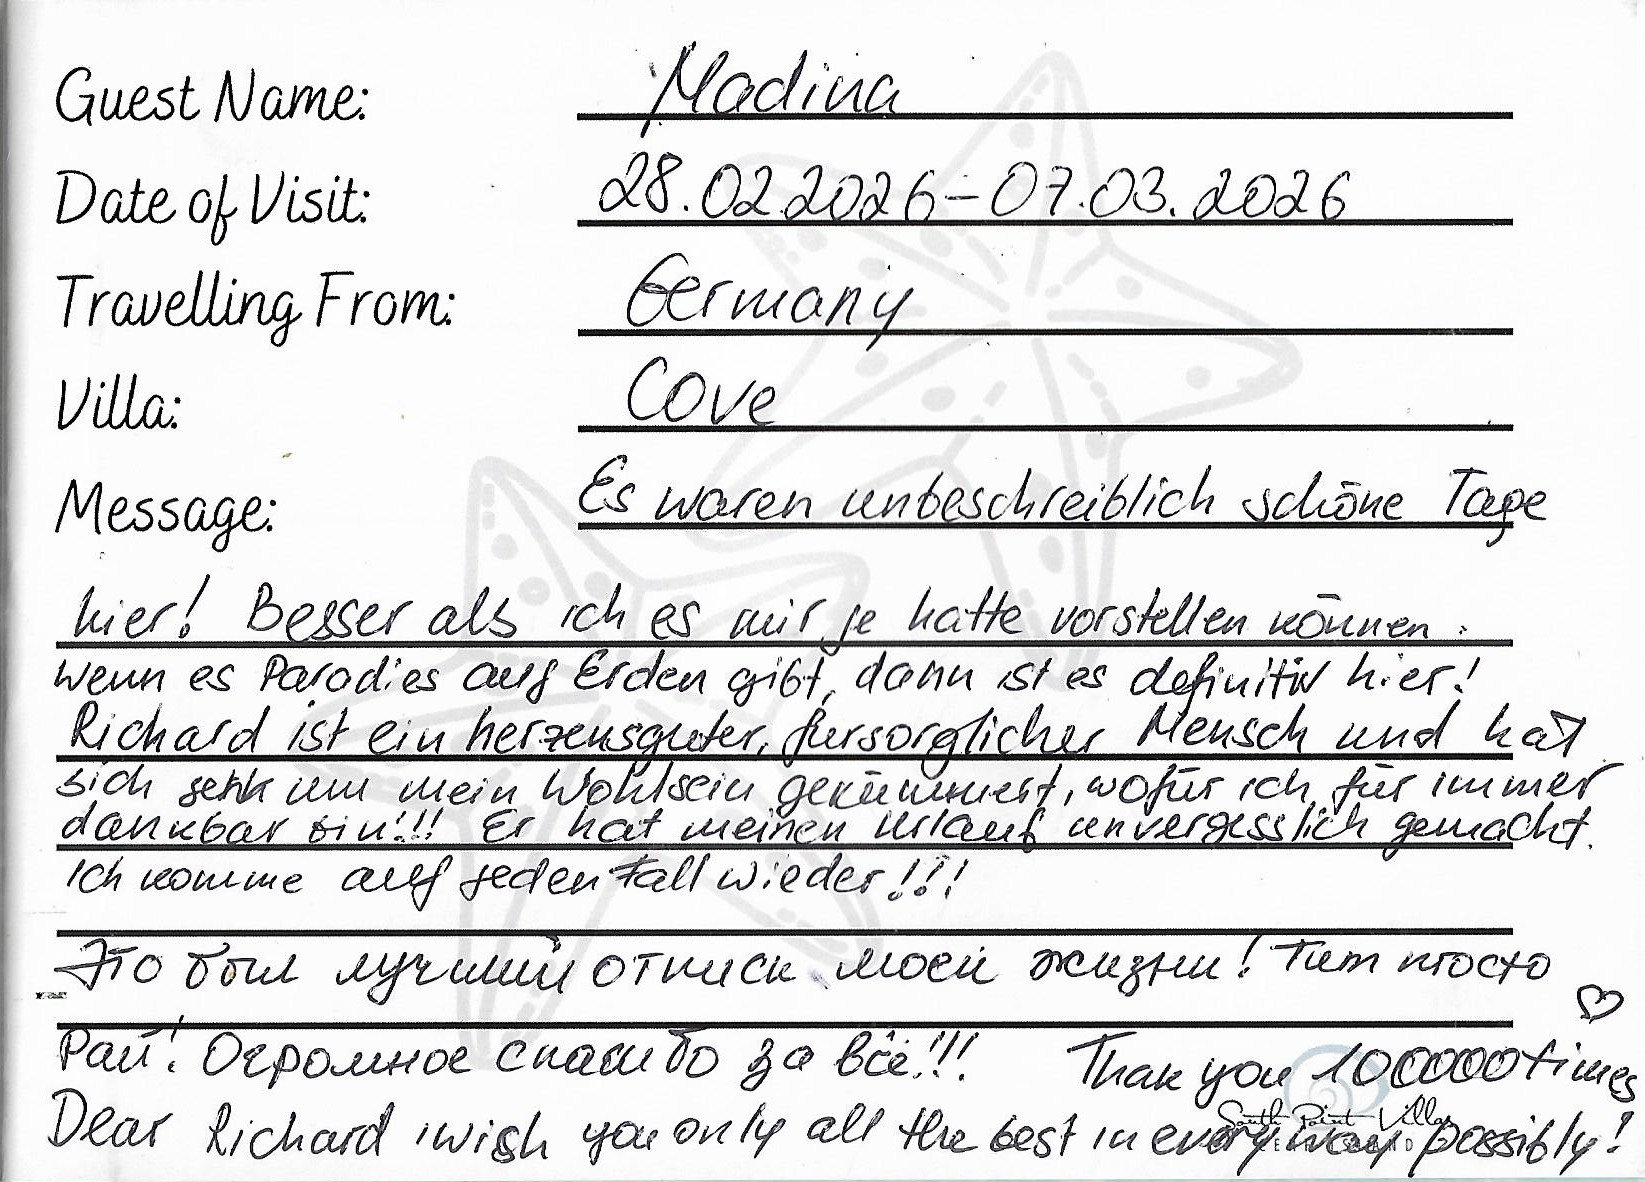 Guest Name: Madina
Date of Visit: 28.02.2026 – 07.03.2026
Travelling From: Germany
Villa: Cove
Message: Es waren unbeschreiblich schöne Tage
hier! Besser als ich es mir je hätte vorstellen können.
Wenn es Paradies auf Erden gibt, dann ist es definitiv hier!
Richard ist ein herzensguter, fürsorglicher Mensch und hat
sich sehr um mein Wohlsein gekümmert, wofür ich für immer
dankbar bin!!! Er hat meinen Urlaub unvergesslich gemacht.
Ich komme auf jeden Fall wieder!!!
Это был лучший отпуск моей жизни! Тут просто
Рай! Огромное спасибо за всё!!! Thank you 100000 times ♡
Dear Richard i wish you only all the best in every way possibly!
South Point Villas